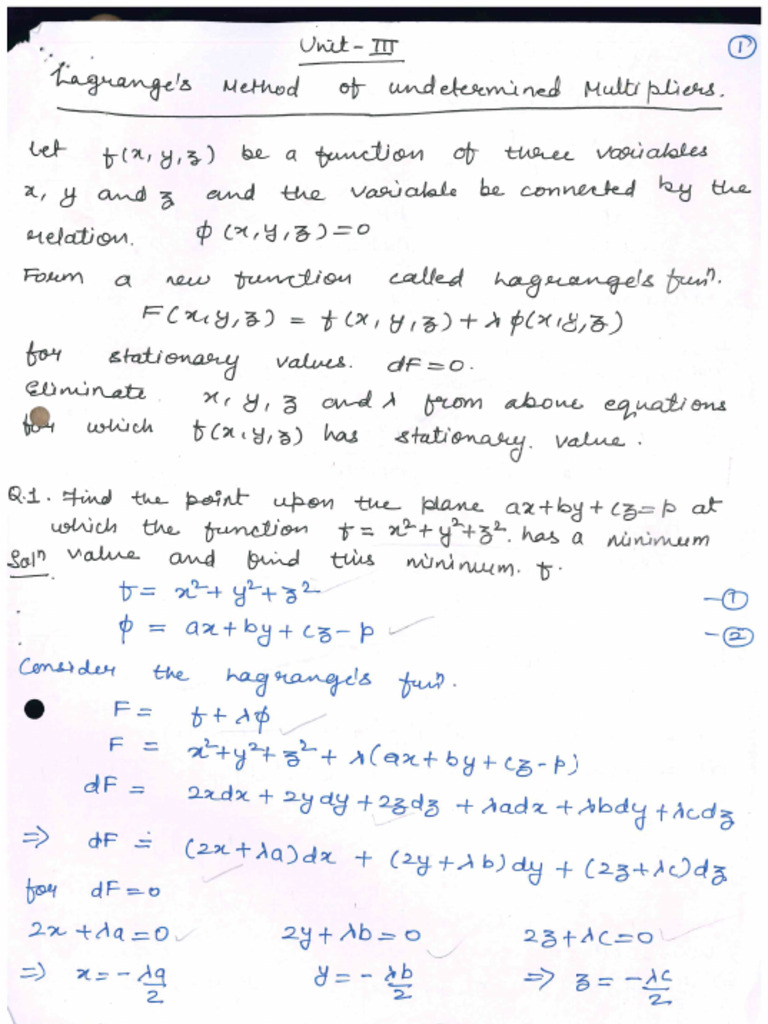 Unit-III
①
Lagrange's Method of undetermined Multipliers.
Let f(x, y, z) be a function of three variables
x, y and z and the variable be connected by the
relation. φ(x, y, z)=0
Form a new function called Lagrange's funⁿ.
F(x, y, z) = f(x, y, z) + λ φ(x, y, z)
for stationary values. dF=0.
Eliminate x, y, z and λ from above equations
for which f(x, y, z) has stationary. value.
Q.1. Find the point upon the plane ax+by+cz=p at
which the function f= x²+y²+z². has a minimum
Solⁿ value and find this minimum. f.
f= x²+y²+z² -①
φ = ax+by+cz-p -②
Consider the Lagrange's funⁿ.
F= f+λφ
F = x²+y²+z²+ λ(ax+by+cz-p)
dF = 2xdx+2ydy+2zdz +λadx+λbdy+λcdz
⇒ dF = (2x+λa)dx + (2y+λb)dy + (2z+λc)dz
for dF=0
2x+λa=0 2y+λb=0 2z+λc=0
⇒ x=-λa/2 y=-λb/2 ⇒ z=-λc/2